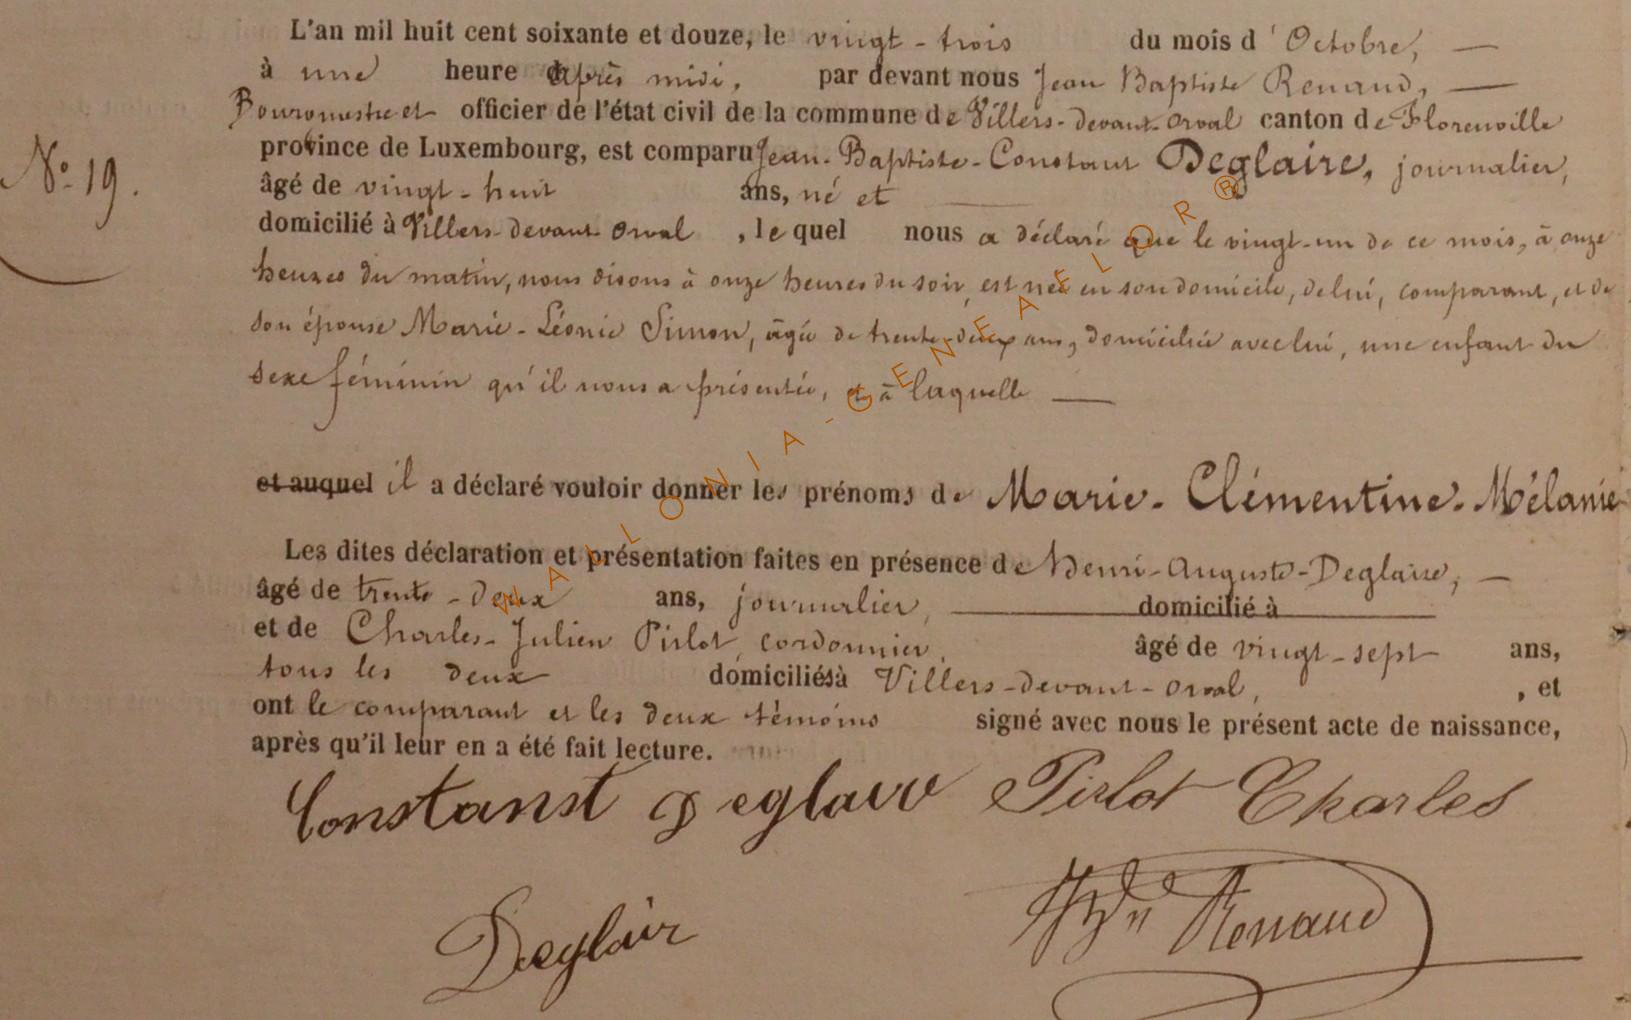 L'an mil huit cent soixante et douze, le vingt-trois du mois d'Octobre, —
à une heure après midi, par devant nous Jean Baptiste Renaud, —
Bourgmestre et officier de l'état civil de la commune de Villers-devant-Orval canton de Florenville
province de Luxembourg, est comparu Jean-Baptiste-Constant Deglaire, journalier,
N° 19.
âgé de vingt-huit ans, né et
domicilié à Villers-devant-Orval, le quel nous a déclaré que le vingt-un de ce mois, à onze
heures du matin, nous disons à onze heures du soir, est née en son domicile, de lui, comparant, et de
son épouse Marie-Léonie Simon, âgée de trente-deux ans, domiciliée avec lui, une enfant du
sexe féminin qu'il nous a présentée, et à laquelle —
et auquel il a déclaré vouloir donner les prénoms de Marie-Clémentine-Mélanie
Les dites déclaration et présentation faites en présence de Henri-Auguste-Deglaire, —
âgé de trente-deux ans, journalier, domicilié à
et de Charles-Julien Pirlot, cordonnier, âgé de vingt-sept ans,
tous les deux domiciliés à Villers-devant-Orval, , et
ont le comparant et les deux témoins signé avec nous le présent acte de naissance,
après qu'il leur en a été fait lecture.
Constanst Deglaire Pirlot Charles
Deglair Renaud
WALLONIA-GENEALOR®